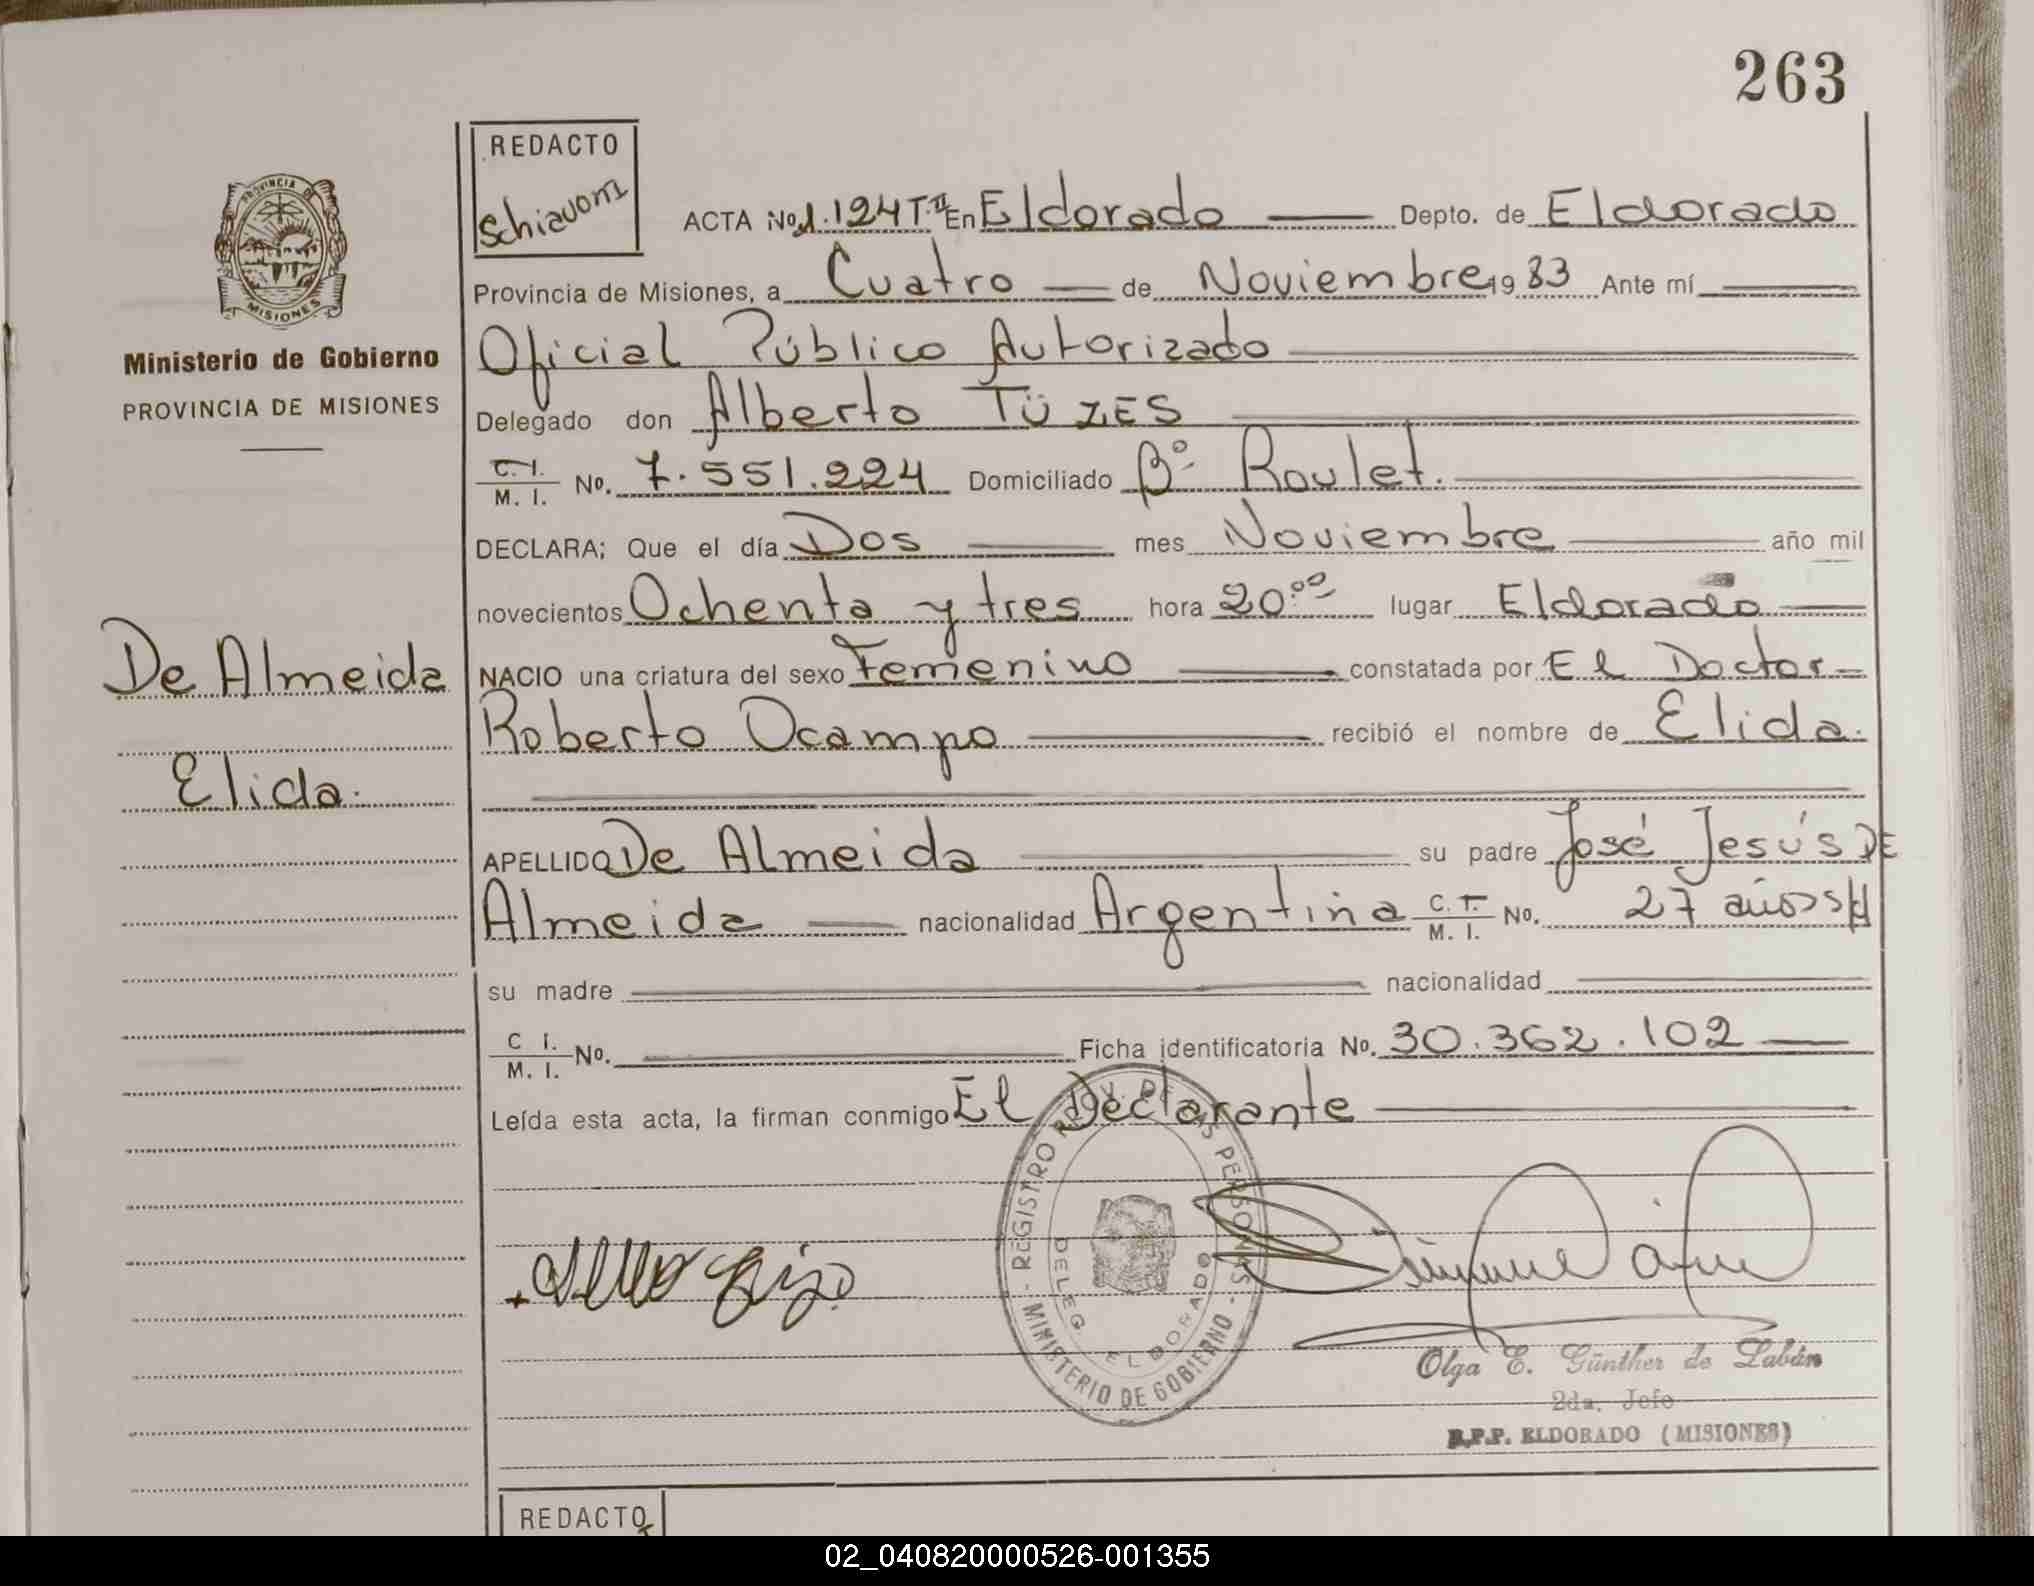 263
REDACTO
Schiavoni
PROVINCIA DE
MISIONES
Ministerio de Gobierno
PROVINCIA DE MISIONES
De Almeida
Elida.
ACTA No. 1.124 T.II En Eldorado Depto. de Eldorado
Provincia de Misiones, a Cuatro de Noviembre 1983 Ante mí
Oficial Público Autorizado
Delegado don Alberto TÜZES
C. I. M. I. No. 7.551.224 Domiciliado Bº Roulet.
DECLARA; Que el día Dos mes Noviembre año mil
novecientos Ochenta y tres hora 20:00 lugar Eldorado
NACIO una criatura del sexo Femenino constatada por El Doctor
Roberto Ocampo recibió el nombre de Elida.
APELLIDO De Almeida su padre José Jesús DE
Almeida nacionalidad Argentina C. I. M. I. No. 27 años
su madre nacionalidad
C I. M. I. No. Ficha identificatoria No. 30.362.102
Leída esta acta, la firman conmigo El Declarante
REGISTRO PERSONAS
DELEG. ELDORADO
MINISTERIO DE GOBIERNO
Olga E. Günther de Labán
2da. Jefe
R.P.P. ELDORADO (MISIONES)
REDACTO
02_040820000526-001355